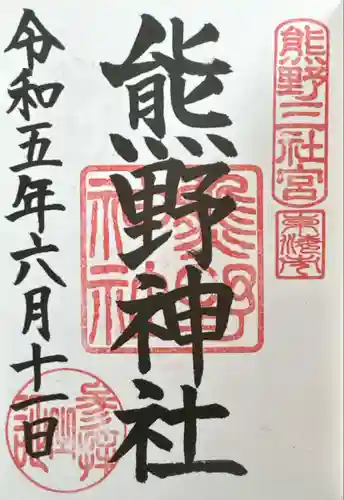 熊野三社宮
熊野神社
熊野神社
令和五年六月十一日
参拝記念